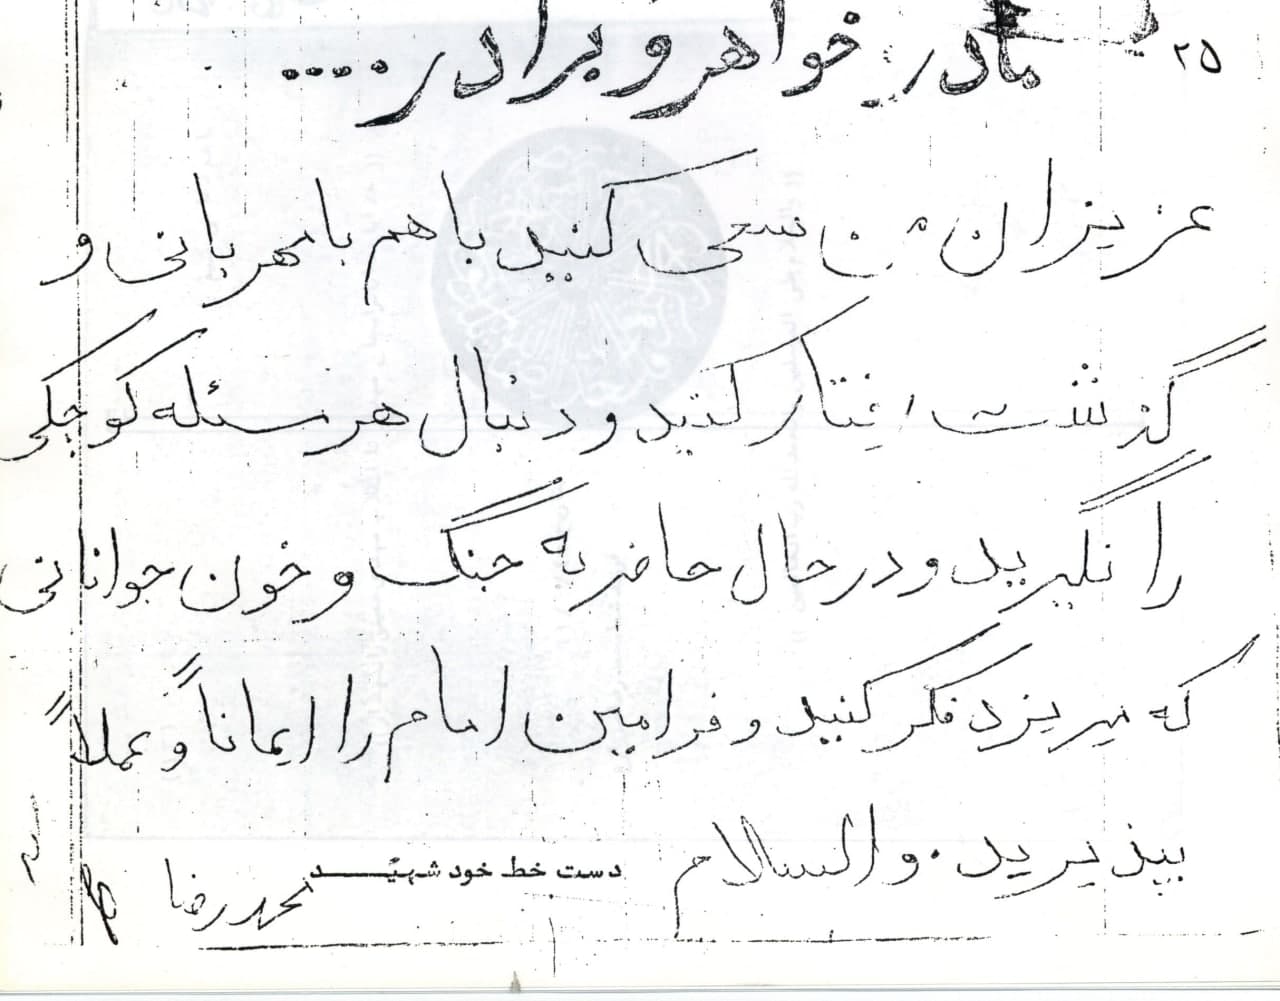 ۲۵ مادر خواهر و برادر ....
عزیزان من سعی کنید باهم بامهربانی و
گذشت رفتار کنید و دنبال هر مسئله کوچکی
را نگیرید و در حال حاضر به جنگ و خون جوانانی
که میریزد فکر کنید و فرامین امام را ایماناً و عملاً
بپذیرید. والسلام
دست خط خود شهیــد
محمدرضا